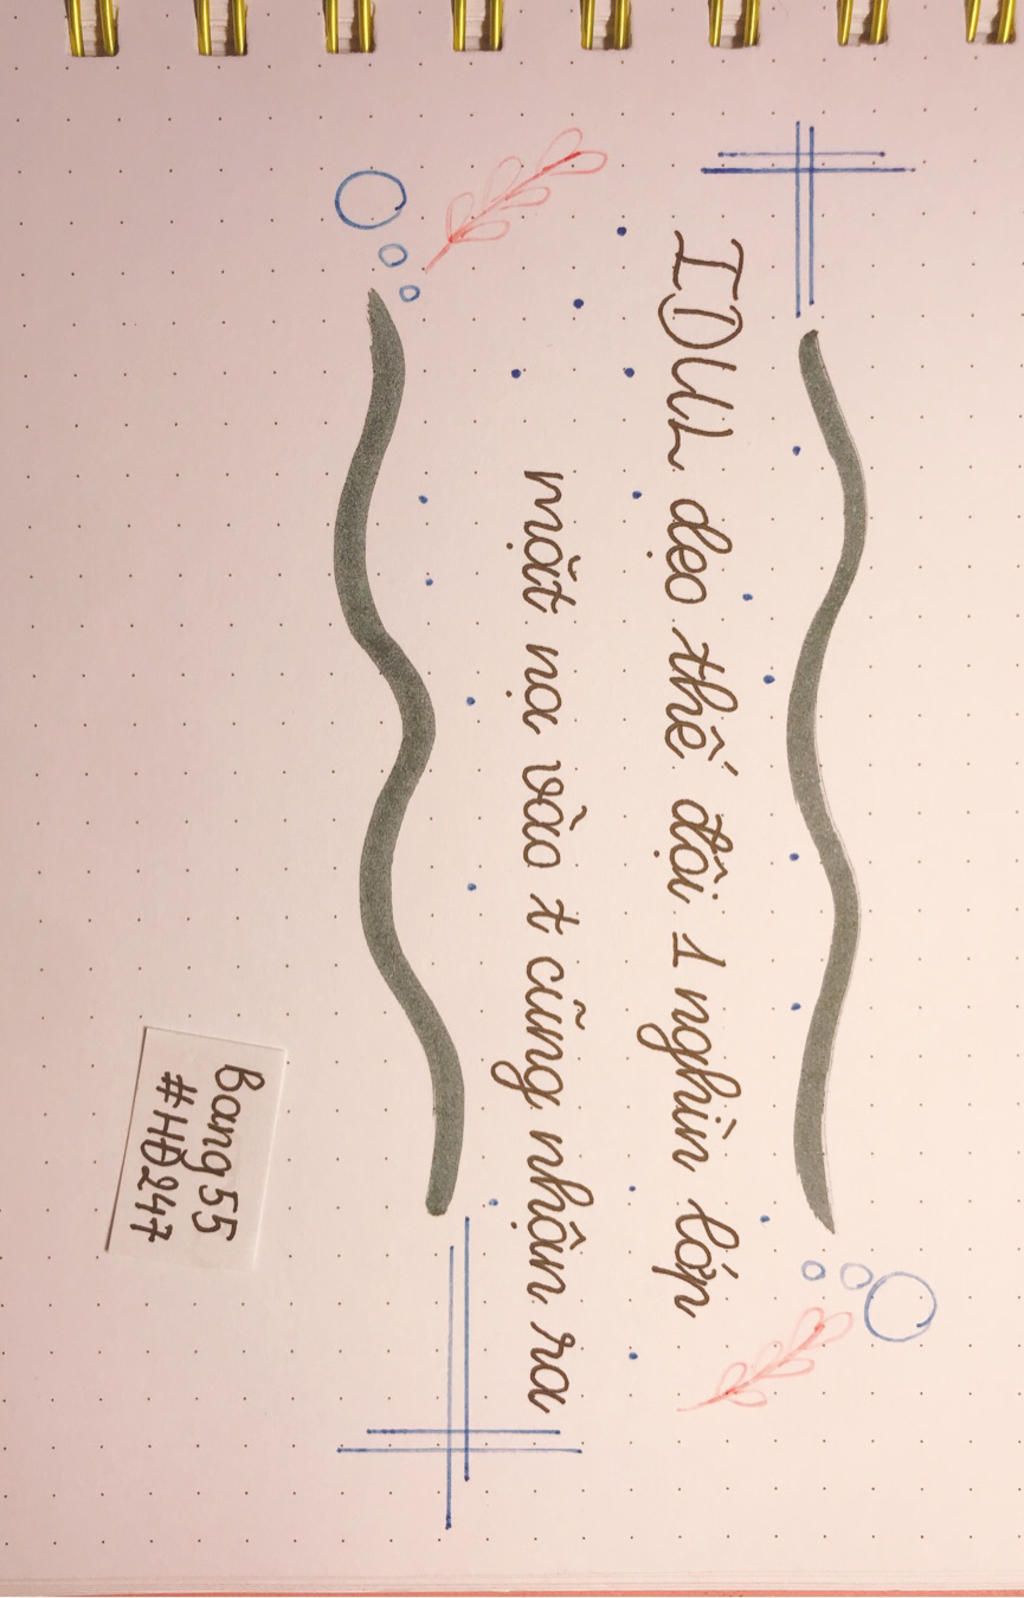 IDUL dẹo thế đội 1 nghìn lớp
mặt nạ vào t cũng nhận ra
Bang55
#HĐ247